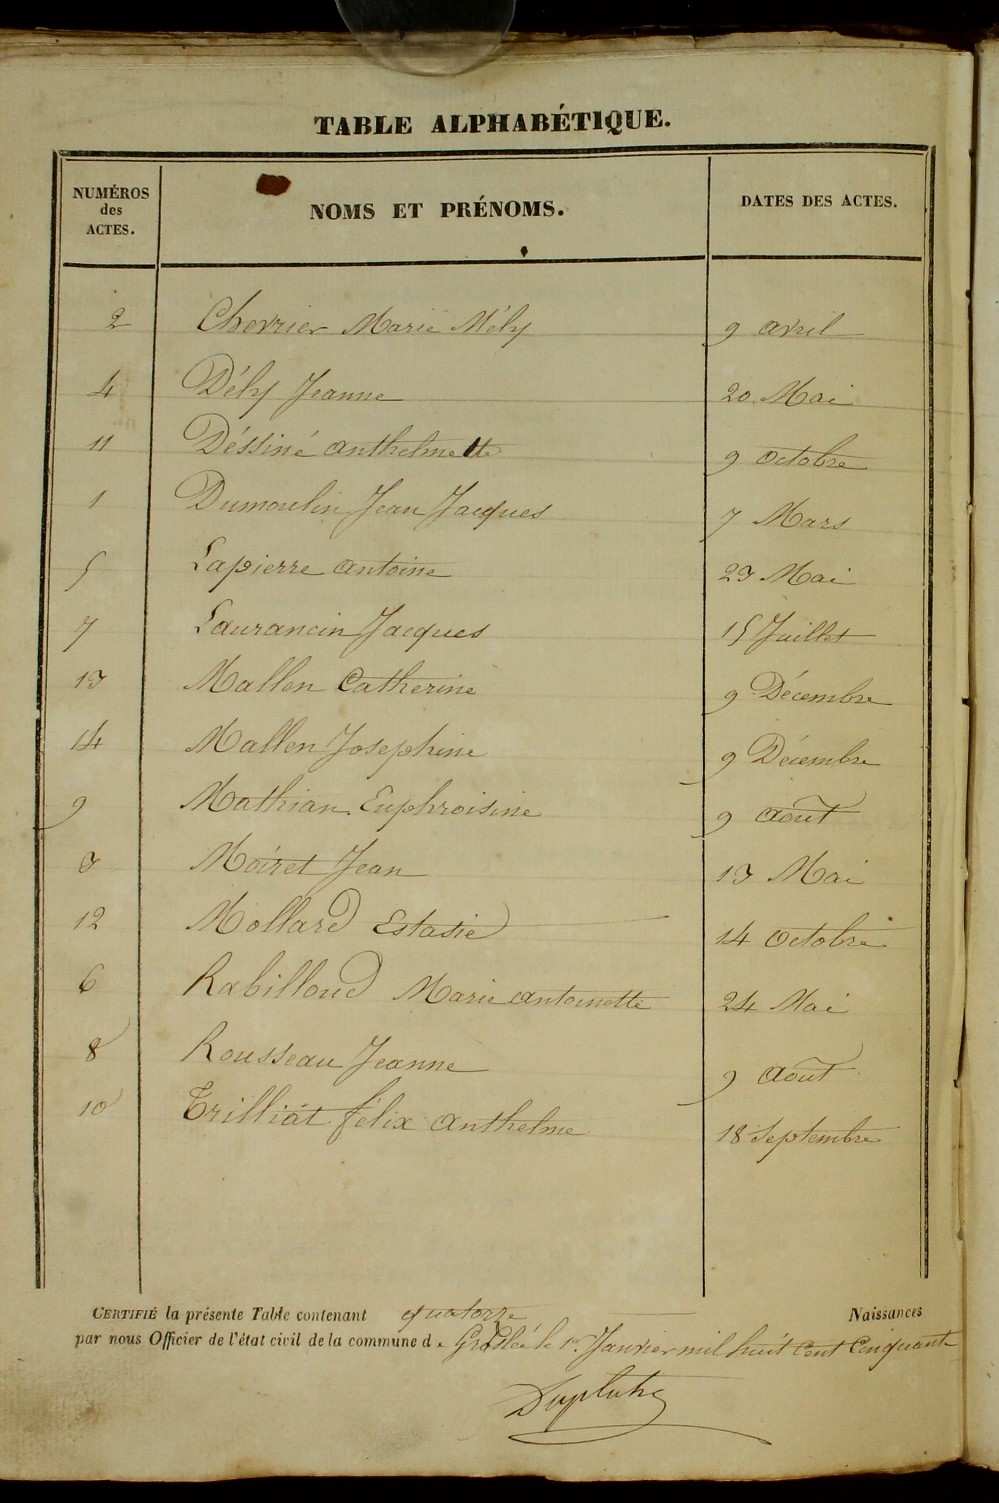 TABLE ALPHABÉTIQUE.
NUMÉROS des ACTES. NOMS ET PRÉNOMS. DATES DES ACTES.
2 Chevrier Marie Mély 9 avril
4 Dély Jeanne 20 Mai
11 Déssiné anthelmette 9 octobre
1 Dumoulin Jean Jacques 7 Mars
5 Lapierre antoine 23 Mai
7 Laurancin Jacques 15 Juillet
13 Mallen Catherine 9 Décembre
14 Mallen Josephine 9 Décembre
9 Mathian Euphroisine 9 août
3 Moiret Jean 13 Mai
12 Mollard Estasie 14 octobre
6 Rabilloud Marie antoinette 24 Mai
8 Rousseau Jeanne 9 août
10 Trilliat félix anthelme 18 Septembre
CERTIFIÉ la présente Table contenant quatorze Naissances
par nous Officier de l'état civil de la commune de Groslée le 1er Janvier mil huit cent Cinquante